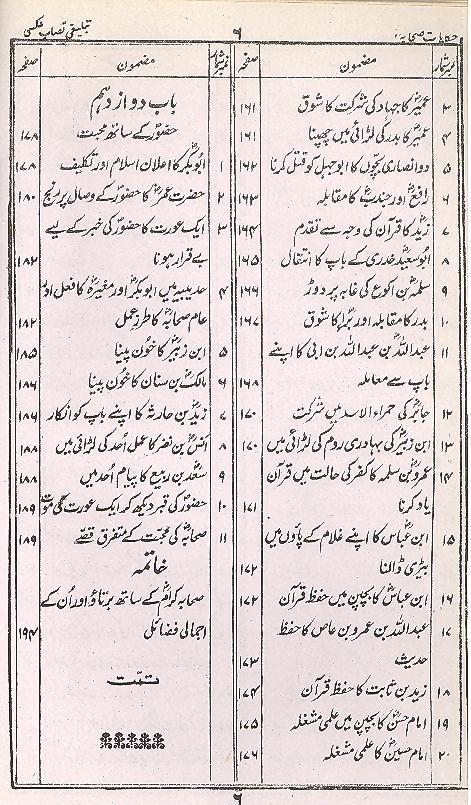 حکایات صحابہؓ
۶
تبلیغی نصاب عکسی
نمبر شمار مضمون صفحہ
۳ عمیرؓ کا جہاد کی شرکت کا شوق ۱۶۱
۴ عمیرؓ کا بدر کی لڑائی میں چھپنا ۱۶۱
۵ دو انصاری بچوں کا ابوجہل کو قتل کرنا ۱۶۲
۶ رافعؓ اور جندبؓ کا مقابلہ ۱۶۳
۷ زیدؓ کا قرآن کی وجہ سے تقدم ۱۶۴
۸ ابوسعید خدریؓ کے باپ کا انتقال ۱۶۵
۹ سلمہؓ بن اکوع کی غابہ پر دوڑ ۱۶۶
۱۰ بدر کا مقابلہ اور براءؓ کا شوق ۱۶۷
۱۱ عبداللہؓ بن عبداللہ بن ابی کا اپنے
باپ سے معاملہ ۱۶۸
۱۲ جابرؓ کی حمراء الاسد میں شرکت ۱۷۰
۱۳ ابن زبیرؓ کی بہادری روم کی لڑائی میں ۱۷۰
۱۴ عمروؓ بن سلمہ کا کفر کی حالت میں قرآن
یاد کرنا ۱۷۱
۱۵ ابن عباسؓ کا اپنے غلام کے پاؤں میں
بیڑی ڈالنا ۱۷۲
۱۶ ابن عباسؓ کا بچپن میں حفظ قرآن ۱۷۲
۱۷ عبداللہؓ بن عمرو بن عاص کا حفظ
حدیث ۱۷۳
۱۸ زیدؓ بن ثابت کا حفظ قرآن ۱۷۴
۱۹ امام حسنؓ کا بچپن میں علمی مشغلہ ۱۷۵
۲۰ امام حسینؓ کا علمی مشغلہ ۱۷۶
نمبر شمار مضمون صفحہ
باب دوازدہم
حضورؐ کے ساتھ محبت ۱۷۸
۱ ابوبکرؓ کا اعلان اسلام اور تکلیف ۱۷۸
۲ حضرت عمرؓ کا حضورؐ کے وصال پر رنج ۱۸۰
۳ ایک عورت کا حضورؐ کی خبر کے لیے
بے قرار ہونا ۱۸۲
۴ حدیبیہ میں ابوبکرؓ اور مغیرہؓ کا فعل اور
عام صحابہؓ کا طرز عمل ۱۸۲
۵ ابن زبیرؓ کا خون پینا ۱۸۵
۶ مالکؓ بن سنان کا خون پینا ۱۸۶
۷ زیدؓ بن حارثہ کا اپنے باپ کو انکار ۱۸۶
۸ انسؓ بن نضر کا عمل اُحد کی لڑائی میں ۱۸۸
۹ سعدؓ بن ربیع کا پیام اُحد میں ۱۸۸
۱۰ حضورؐ کی قبر دیکھ کر ایک عورت کی موت ۱۸۹
۱۱ صحابہؓ کی محبت کے متفرق قصے ۱۸۹
خاتمہ
صحابہ کرامؓ کے ساتھ برتاؤ اور اُن کے
اجمالی فضائل ۱۹۴
تمّت
۶